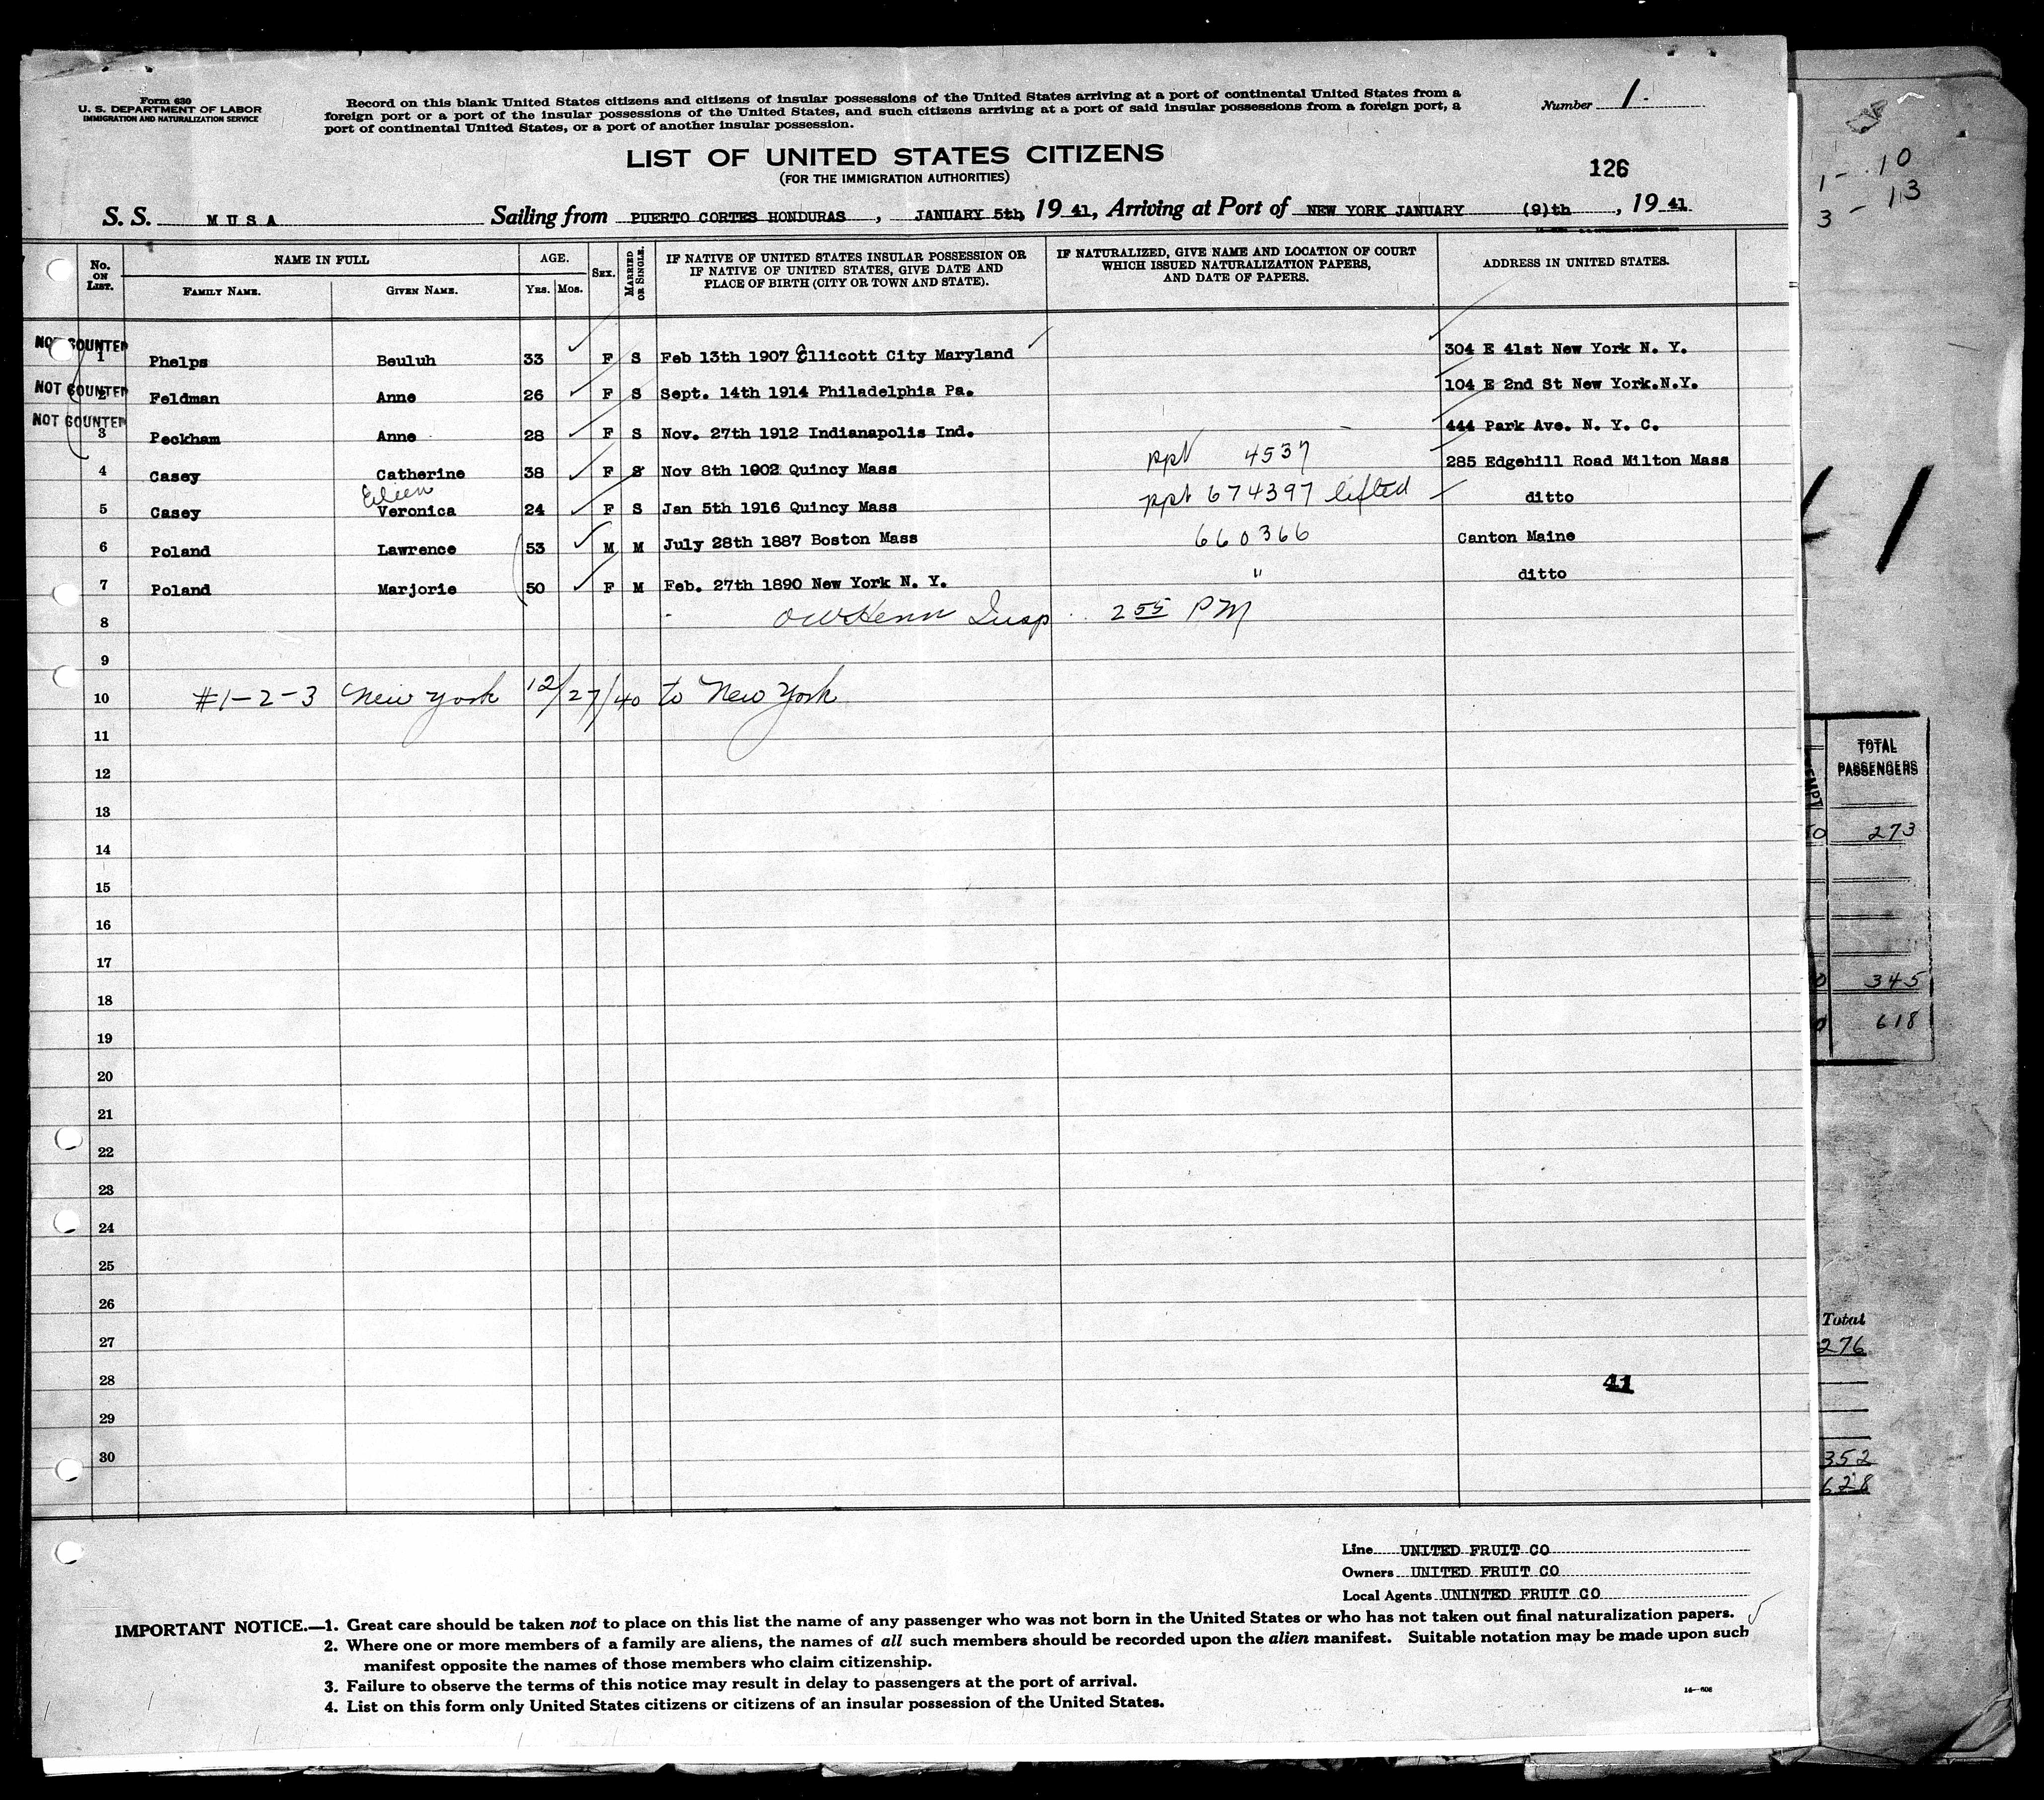 Form 630
U. S. DEPARTMENT OF LABOR
IMMIGRATION AND NATURALIZATION SERVICE
Record on this blank United States citizens and citizens of insular possessions of the United States arriving at a port of continental United States from a
foreign port or a port of the insular possessions of the United States, and such citizens arriving at a port of said insular possessions from a foreign port, a
port of continental United States, or a port of another insular possession.
Number 1.
LIST OF UNITED STATES CITIZENS
(FOR THE IMMIGRATION AUTHORITIES)
126
S. S. MUSA Sailing from PUERTO CORTES HONDURAS, JANUARY 5th, 19 41, Arriving at Port of NEW YORK JANUARY (9)th, 19 41
No. ON LIST. NAME IN FULL AGE. SEX. MARRIED OR SINGLE. IF NATIVE OF UNITED STATES INSULAR POSSESSION OR IF NATIVE OF UNITED STATES, GIVE DATE AND PLACE OF BIRTH (CITY OR TOWN AND STATE). IF NATURALIZED, GIVE NAME AND LOCATION OF COURT WHICH ISSUED NATURALIZATION PAPERS, AND DATE OF PAPERS. ADDRESS IN UNITED STATES.
FAMILY NAME. GIVEN NAME. YRS. MOS.
NOT COUNTED 1 Phelps Beuluh 33 F S Feb 13th 1907 Ellicott City Maryland 304 E 41st New York N. Y.
NOT COUNTED 2 Feldman Anne 26 F S Sept. 14th 1914 Philadelphia Pa. 104 E 2nd St New York.N.Y.
NOT COUNTED 3 Peckham Anne 28 F S Nov. 27th 1912 Indianapolis Ind. 444 Park Ave. N. Y. C.
4 Casey Catherine 38 F S Nov 8th 1902 Quincy Mass ppt 4537 285 Edgehill Road Milton Mass
Eileen
5 Casey Veronica 24 F S Jan 5th 1916 Quincy Mass ppt 674397 lifted ditto
6 Poland Lawrence 53 M M July 28th 1887 Boston Mass 660366 Canton Maine
7 Poland Marjorie 50 F M Feb. 27th 1890 New York N. Y. " ditto
8 Insp. 2 55 PM
9
10 #1-2-3 New York 12/27/40 to New York
11
12
13
14
15
16
17
18
19
20
21
22
23
24
25
26
27
28 41
29
30
Line UNITED FRUIT CO
Owners UNITED FRUIT CO
Local Agents UNINTED FRUIT CO
IMPORTANT NOTICE.—1. Great care should be taken not to place on this list the name of any passenger who was not born in the United States or who has not taken out final naturalization papers.
2. Where one or more members of a family are aliens, the names of all such members should be recorded upon the alien manifest. Suitable notation may be made upon such
manifest opposite the names of those members who claim citizenship.
3. Failure to observe the terms of this notice may result in delay to passengers at the port of arrival.
4. List on this form only United States citizens or citizens of an insular possession of the United States.
1 - 10
3 - 13
TOTAL
PASSENGERS
273
345
618
Total
276
352
628